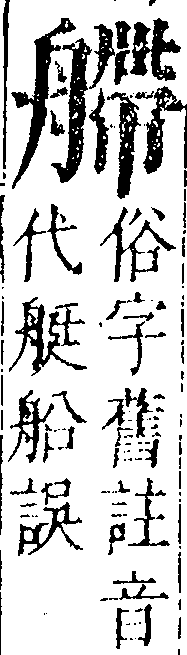 艜
俗字舊註音
代艇船誤